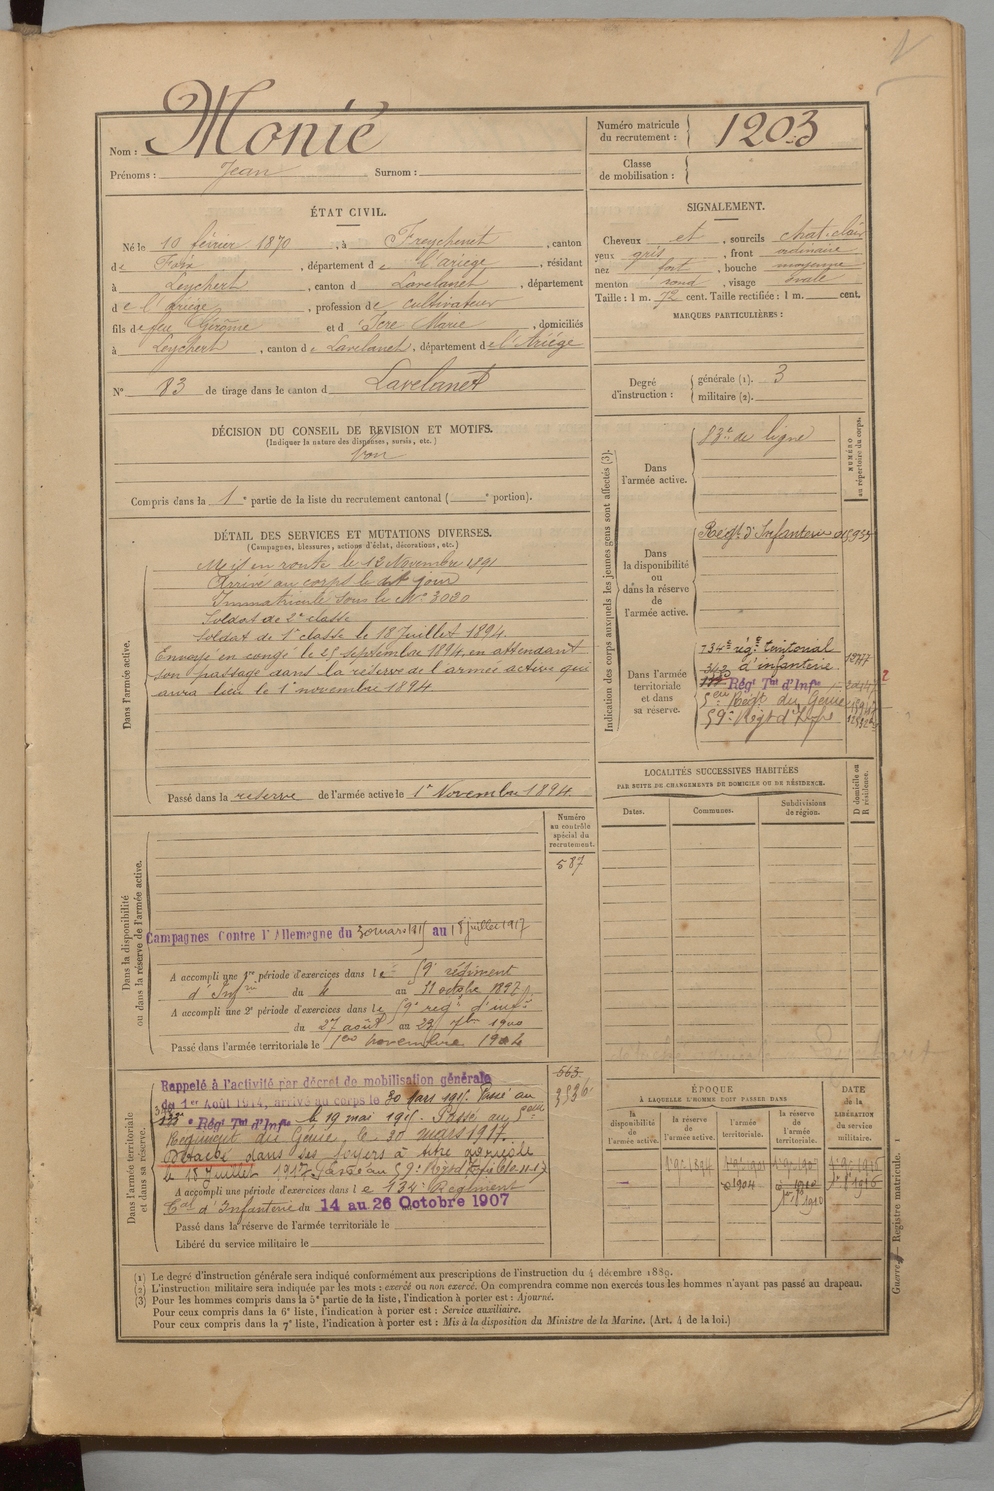 Nom : Monié
Prénoms : Jean Surnom :
Numéro matricule du recrutement : 1203
Classe de mobilisation :
ÉTAT CIVIL.
Né le 10 février 1870, à Freychenet, canton
de Foix, département de l'ariège, résidant
à Leychert, canton de Lavelanet, département
de l'ariège, profession de cultivateur
fils de feu Gérôme et d Icre Marie, domiciliés
à Leychert, canton de Lavelanet, département de l'Ariége
N° 83 de tirage dans le canton d Lavelanet
SIGNALEMENT.
Cheveux et, sourcils chat. clair
yeux gris, front ordinaire
nez fort, bouche moyenne
menton rond, visage ovale
Taille : 1 m. 72 cent. Taille rectifiée : 1 m. cent.
MARQUES PARTICULIÈRES :
Degré d'instruction : générale (1). 3
militaire (2).
DÉCISION DU CONSEIL DE REVISION ET MOTIFS.
(Indiquer la nature des dispenses, sursis, etc.)
bon
Compris dans la 1e partie de la liste du recrutement cantonal ( e portion).
DÉTAIL DES SERVICES ET MUTATIONS DIVERSES.
(Campagnes, blessures, actions d'éclat, décorations, etc.)
Dans l'armée active.
Mis en route le 13 Novembre 1891
Arrivé au corps le dit jour
Immatriculé sous le N° 3020
Soldat de 2e classe
Soldat de 1e classe le 18 Juillet 1894.
Envoyé en congé le 25 septembre 1894, en attendant
son passage dans la réserve de l'armée active qui
aura lieu le 1er novembre 1894
Passé dans la reserve de l'armée active le 1er Novembre 1894.
Indication des corps auxquels les jeunes gens sont affectés (3).
NUMÉRO au répertoire du corps.
Dans l'armée active.
83e de ligne
Dans la disponibilité ou dans la réserve de l'armée active.
Régt d'Infanterie
Dans l'armée territoriale et dans sa réserve.
134e rég t territorial
d'infanterie
Régt Tal d'Infie
5eme Régt du Genie
59e Régt d'Infie
LOCALITÉS SUCCESSIVES HABITÉES
PAR SUITE DE CHANGEMENTS DE DOMICILE OU DE RÉSIDENCE.
Dates. Communes. Subdivisions de région. D domicile ou R résidence.
Dans la disponibilité ou dans la réserve de l'armée active.
Numéro au contrôle spécial du recrutement.
587
Campagnes Contre l'Allemagne du 30 mars 1915 au 18 juillet 1917
A accompli une 1re période d'exercices dans le 59e régiment
d'Infrie du 4 au 31 octobre 1897
A accompli une 2e période d'exercices dans le 59e régt d'inf
du 27 août au 23 7bre 1900
Passé dans l'armée territoriale le 1er novembre 1904
Dans l'armée territoriale et dans sa réserve.
563
3536
Rappelé à l'activité par décret de mobilisation générale
du 1er Août 1914, arrivé au corps le 30 Mars 1915. Passé au
Régt Tal d'Infie le 19 mai 1915. Passé au 5eme
Régiment du Génie, le 20 mars 1917.
Détaché dans ses foyers à titre agricole
le 18 Juillet 1917. Passé au 59e Régt d'Infie le 11-17
A accompli une période d'exercices dans le 134e Régiment
Tal d'Infanterie du 14 au 26 Octobre 1907
Passé dans la réserve de l'armée territoriale le
Libéré du service militaire le
ÉPOQUE
À LAQUELLE L'HOMME DOIT PASSER DANS
la disponibilité de l'armée active. la réserve de l'armée active. l'armée territoriale. la réserve de l'armée territoriale.
DATE de la LIBÉRATION du service militaire.
1er 9e 1894
1904 1910 1916
Guerre. — Registre matricule. 1
(1) Le degré d'instruction générale sera indiqué conformément aux prescriptions de l'instruction du 4 décembre 1889.
(2) L'instruction militaire sera indiquée par les mots : exercé ou non exercé. On comprendra comme non exercés tous les hommes n'ayant pas passé au drapeau.
(3) Pour les hommes compris dans la 5e partie de la liste, l'indication à porter est : Ajourné.
Pour ceux compris dans la 6e liste, l'indication à porter est : Service auxiliaire.
Pour ceux compris dans la 7e liste, l'indication à porter est : Mis à la disposition du Ministre de la Marine. (Art. 4 de la loi.)